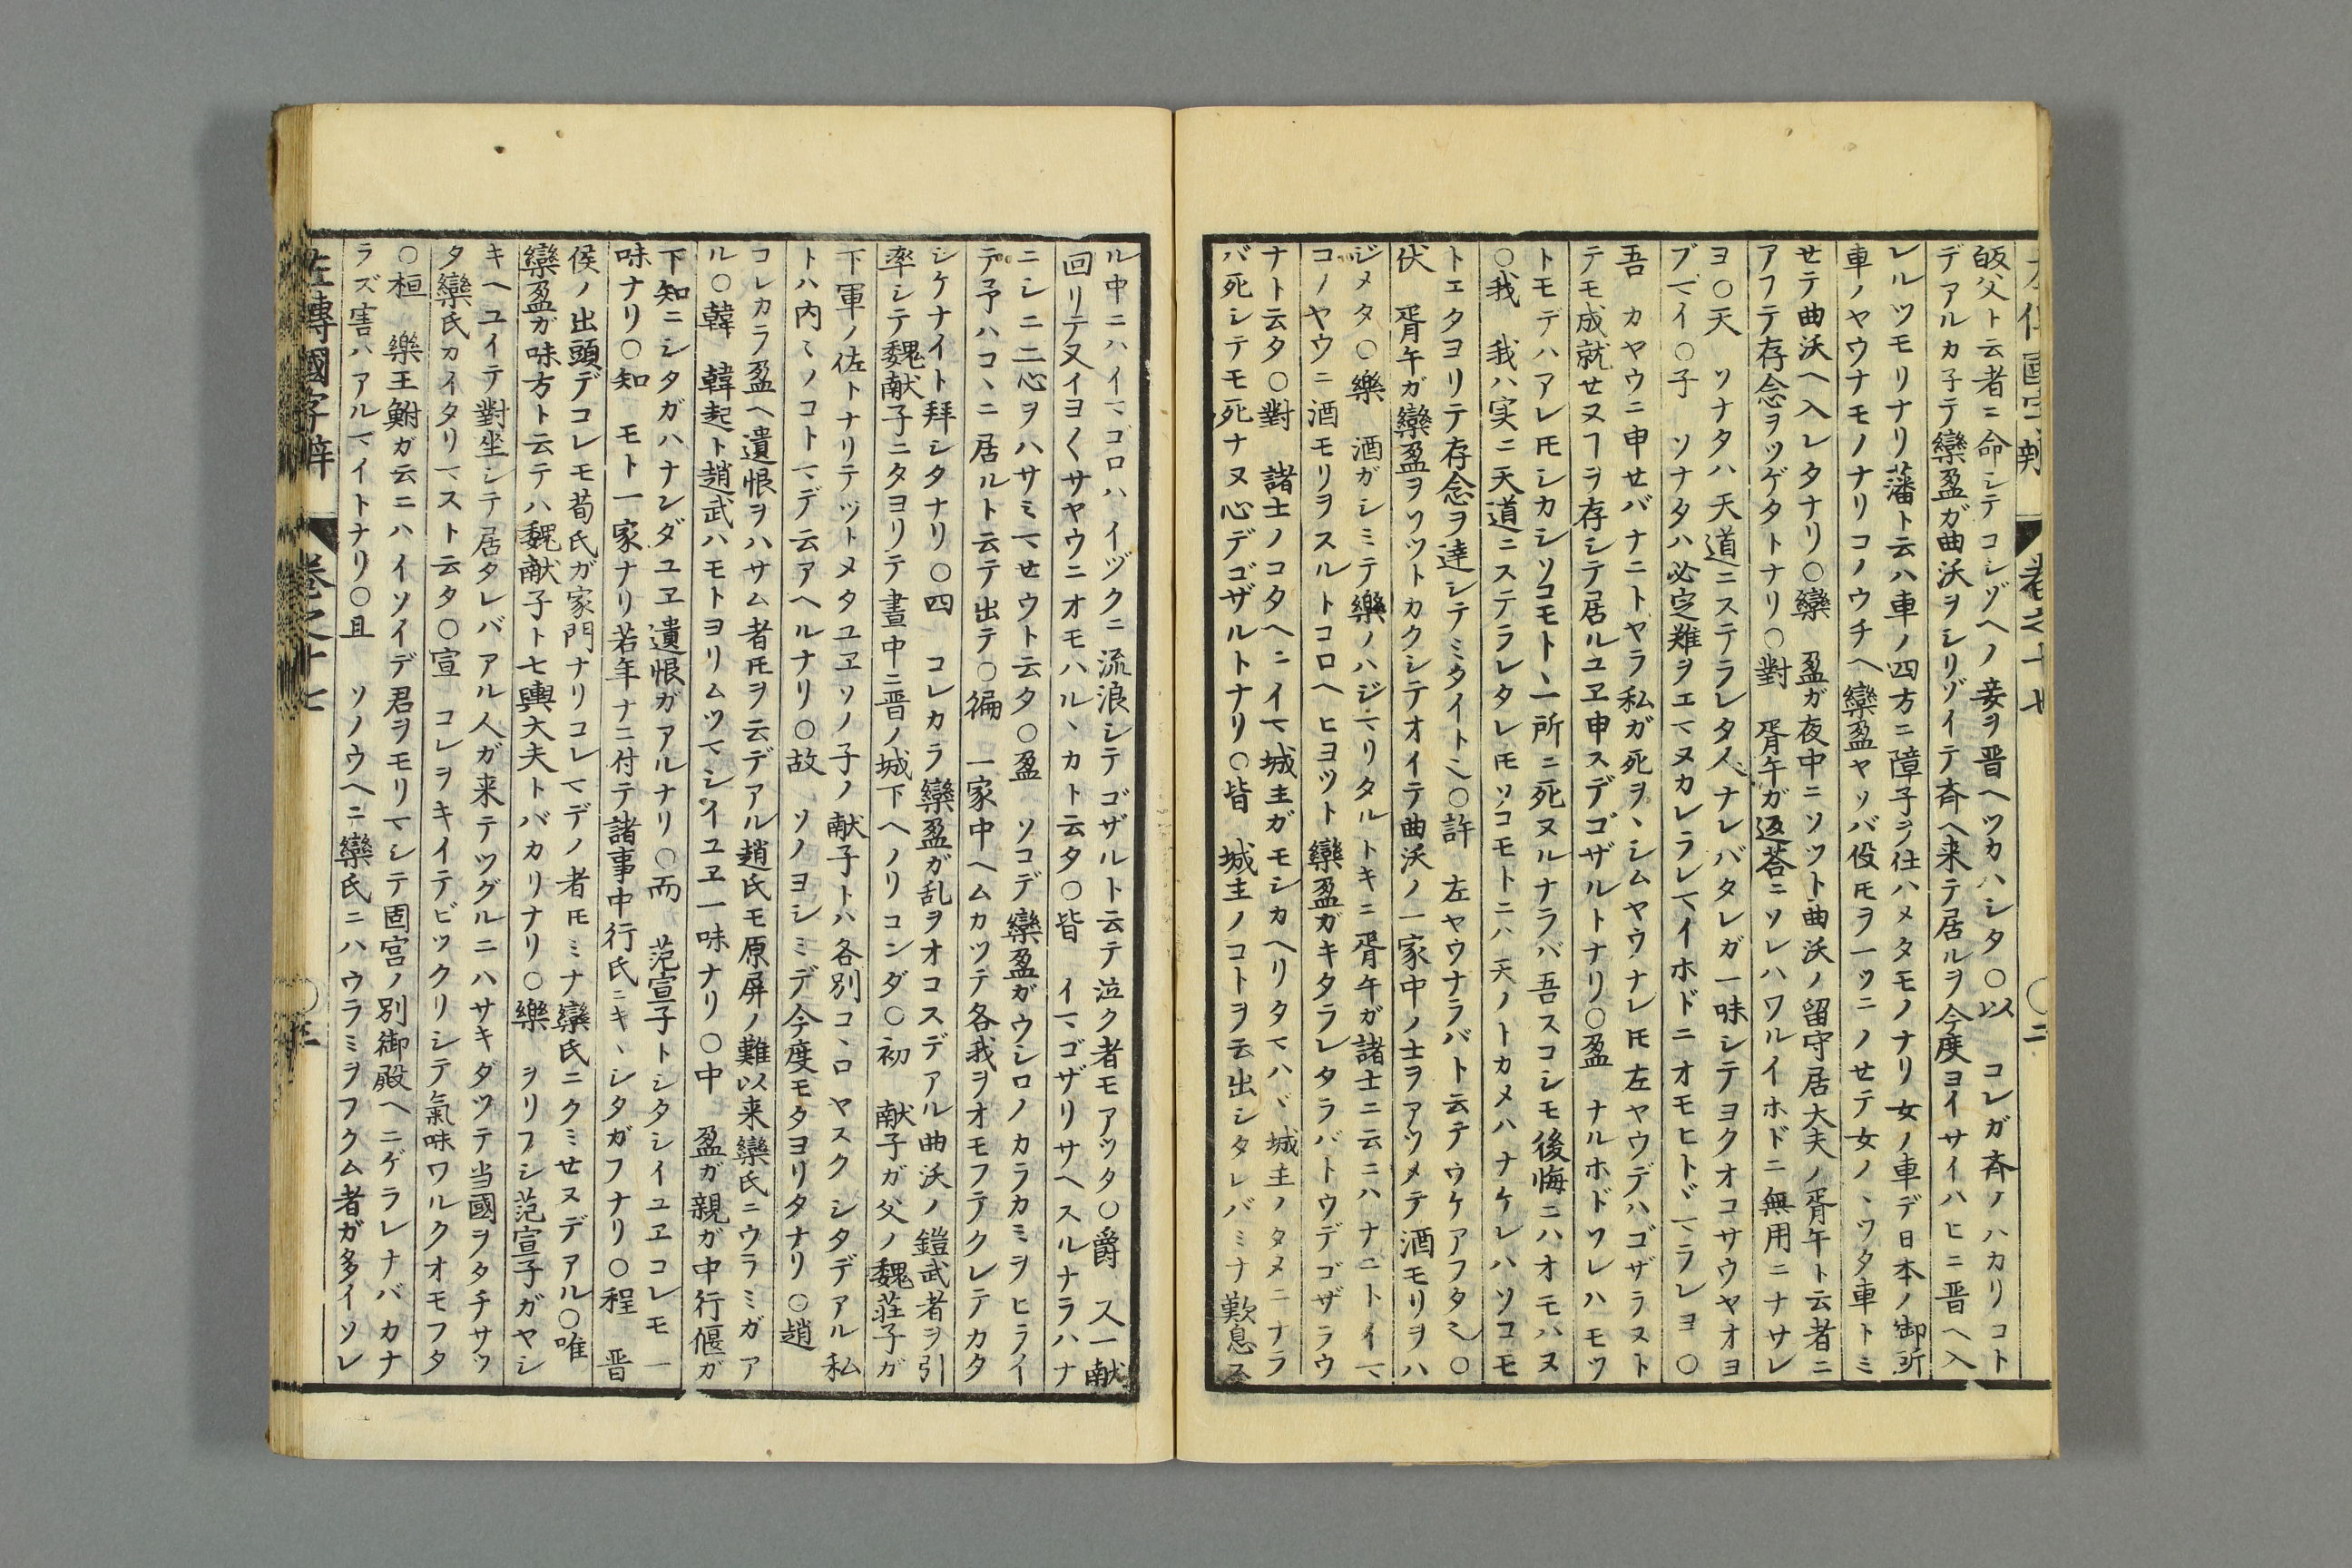 皈父ト云者ニ命シテコシゾヘノ妾ヲ晋ヘツカハシタ〇以　コレガ斉ノハカリコト
デアルカ子テ欒盈ガ曲沃ヲシリゾイテ斉ヘ来テ居ルヲ今度ヨイサイハヒニ晋ヘ入
レルツモリナリ藩ト云ハ車ノ四方ニ障子ヲ仕ハメタモノナリ女ノ車デ日本ノ御所
車ノヤウナモノナリコノウチヘ欒盈ヤソバ役𪜈ヲ一ツニノせテ女ノヽワタ車トミ
せテ曲沃ヘ入レタナリ〇欒　盈ガ夜中ニソツト曲沃ノ留守居大夫ノ胥午ト云者ニ
アフテ存念ヲツゲタトナリ〇對　胥午ガ返荅ニソレハワルイホドニ無用ニナサレ
ヨ〇天　ソナタハ天道ニステラレタ人ナレバタレガ一味シテヨクオコサウヤオヨ
ブマイ〇子　ソナタハ必定難ヲエマヌカレラレマイホドニオモヒトヾマラレヨ〇
吾　カヤウニ申せバナニトヤラ私ガ死ヲヽシムヤウナレ𪜈左ヤウデハゴザラヌト
テモ成就せヌヿヲ存シテ居ルユヱ申スデゴザルトナリ〇盈　ナルホドソレハモツ
トモデハアレ𪜈シカシソコモトヽ一所ニ死ヌルナラバ吾スコシモ後悔ニハオモハヌ
〇我　我ハ実ニ天道ニステラレタレ𪜈ソコモトニハ天ノトカメハナケレハソコモ
トエタヨリテ存念ヲ達シテミタイト也〇許　左ヤウナラバト云テウケアフタ也〇
伏　胥午ガ欒盈ヲソツトカクシテオイテ曲沃ノ一家中ノ士ヲアツメテ酒モリヲハ
ジメタ〇樂　酒ガシミテ樂ノハジマリタルトキニ胥午ガ諸士ニ云ニハナニトイマ
コノヤウニ酒モリヲスルトコロヘヒヨツト欒盈ガキタラレタラバトウデゴザラウ
ナト云タ〇對　諸士ノコタヘニイマ城主ガモシカヘリタマハヾ城主ノタメニナラ
バ死シテモ死ナヌ心デゴザルトナリ〇皆　城主ノコトヲ云出シタレバミナ歎息ス
ル中ニハイマゴロハイヅクニ流浪シテゴザルト云テ泣ク者モアツタ〇爵　又一献
回リテ又イヨ〱サヤウニオモハルヽカト云タ〇皆　イマゴザリサヘスルナラハナ
ニシニ二心ヲハサミマせウト云タ〇盈　ソコデ欒盈ガウシロノカラカミヲヒライ
テ予ハコヽニ居ルト云テ出テ〇徧　一家中ヘムカツテ各我ヲオモフテクレテカタ
シケナイト拜シタナリ〇四　コレカラ欒盈ガ乱ヲオコスデアル曲沃ノ鎧武者ヲ引
率シテ魏献子ニタヨリテ晝中ニ晋ノ城下ヘノリコンダ〇初　献子ガ父ノ魏莊子ガ
下軍ノ佐トナリテツトメタユヱソノ子ノ献子トハ各別コヽロヤスクシタデアル私
トハ内ミノコトマデ云アヘルナリ〇故　ソノヨシミデ今度モタヨリタナリ〇趙
コレカラ盈ヘ遺恨ヲハサム者𪜈ヲ云デアル趙氏モ原屏ノ難以来欒氏ニウラミガア
ル〇韓　韓起ト趙武ハモトヨリムツマシイユヱ一味ナリ〇中　盈ガ親ガ中行偃ガ
下知ニシタガハナンダユヱ遺恨ガアルナリ〇而　范宣子トシタシイユヱコレモ一
味ナリ〇知　モト一家ナリ若年ナニ付テ諸事中行氏ニキヽシタガフナリ〇程　晋
侯ノ出頭デコレモ荀氏ガ家門ナリコレマデノ者𪜈ミナ欒氏ニクミせヌデアル〇唯
欒盈ガ味方ト云テハ魏献子ト七輿大夫トバカリナリ〇樂　ヲリフシ范宣子ガヤシ
キヘユイテ對坐シテ居タレバアル人ガ来テツグルニハサキダツテ当國ヲタチサツ
タ欒氏カイタリマスト云タ〇宣　コレヲキイテビツクリシテ氣味ワルクオモフタ
〇桓　樂王鮒ガ云ニハイソイデ君ヲモリマシテ固宮ノ別御殿ヘニゲラレナバカナ
ラズ害ハアルマイトナリ〇且　ソノウヘニ欒氏ニハウラミヲフクム者ガ多イソレ
左傳國字辯　巻之十七